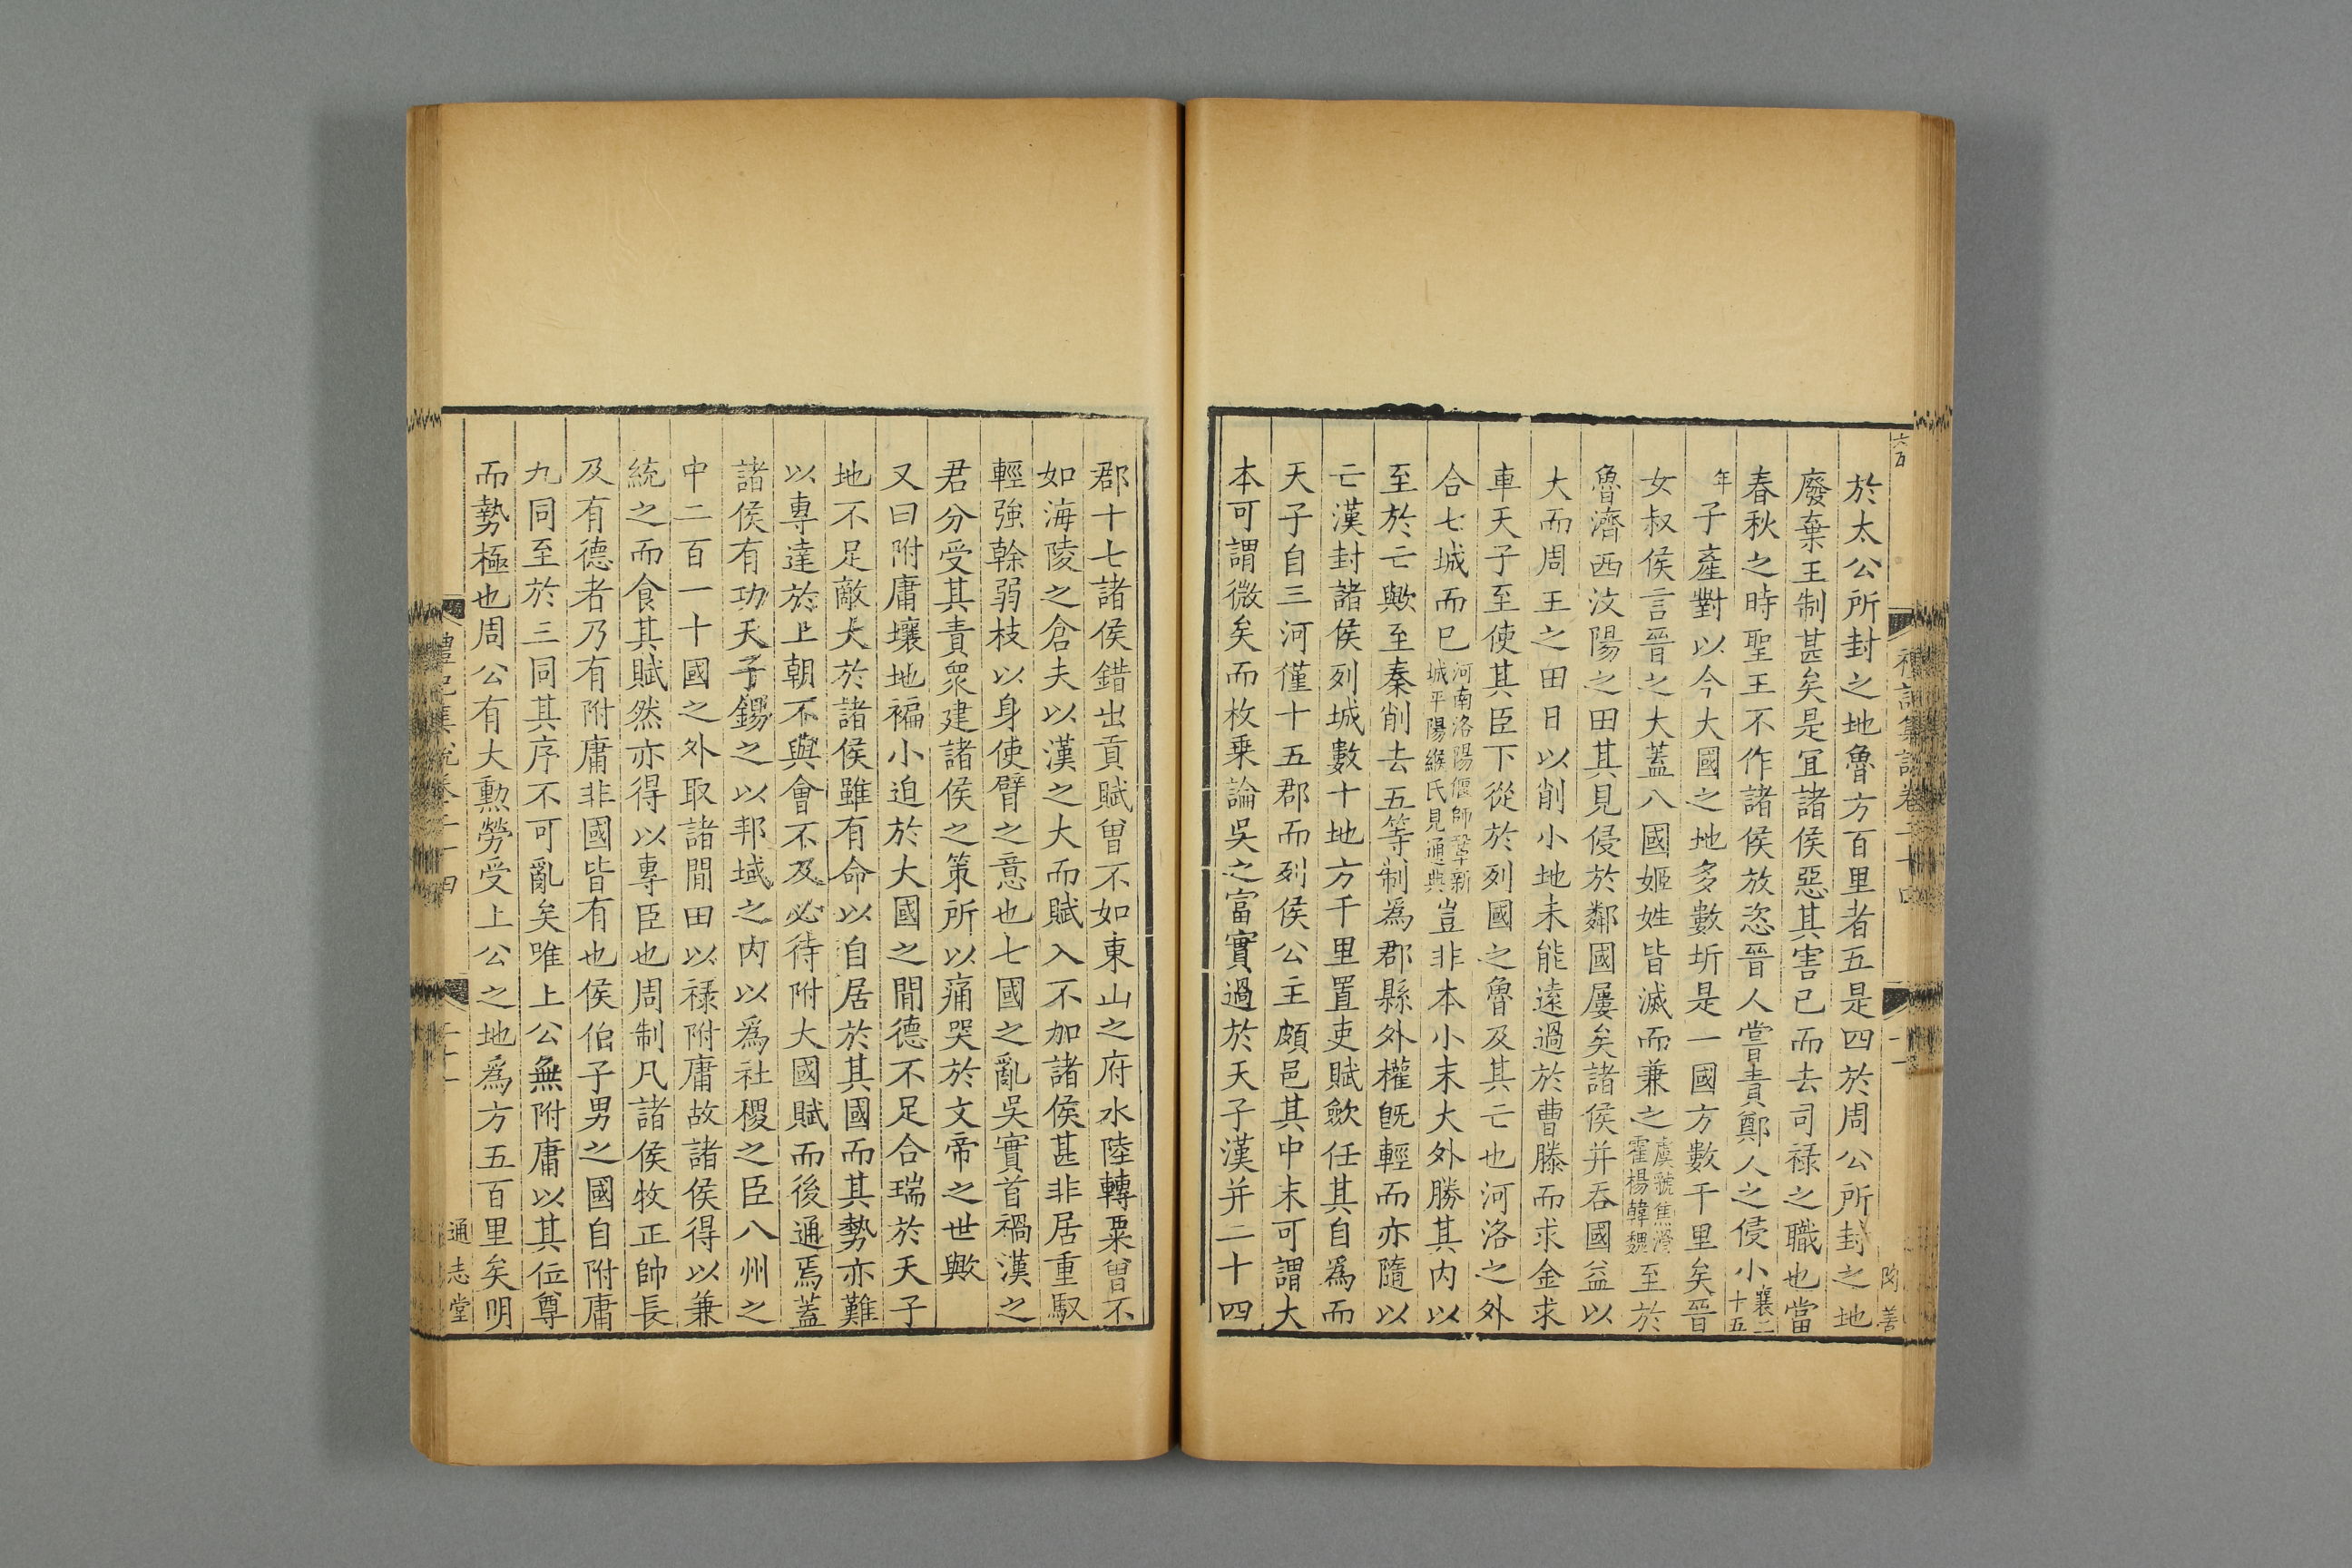 於太公所封之地魯方百里者五是四於周公所封之地
廢棄王制甚矣是宜諸侯惡其害己而去司祿之職也當
春秋之時聖王不作諸侯放恣晉人嘗責鄭人之侵小襄二十五
年子產對以今大國之地多數圻是一國方數千里矣晉
女叔侯言晉之大蓋八國姬姓皆滅而兼之虞虢焦滑霍楊韓魏至於
魯濟西汶陽之田其見侵於鄰國屢矣諸侯并吞國益以
大而周王之田日以削小地未能遠過於曹滕而求金求
車天子至使其臣下從於列國之魯及其亡也河洛之外
合七城而已河南洛陽偃師鞏新城平陽緱氏見通典豈非本小末大外勝其內以
至於亡歟至秦削去五等制為郡縣外權旣輕而亦隨以
亡漢封諸侯列城數十地方千里置吏賦歛任其自為而
天子自三河僅十五郡而列侯公主頗邑其中末可謂大
本可謂微矣而枚乗論吳之富實過於天子漢并二十四
郡十七諸侯錯出貢賦曾不如東山之府水陸轉粟曾不
如海陵之倉夫以漢之大而賦入不加諸侯甚非居重馭
輕強榦弱枝以身使臂之意也七國之亂吳實首禍漢之
君分受其責衆建諸侯之策所以痛哭於文帝之世歟
又曰附庸壤地褊小迫於大國之間德不足合瑞於天子
地不足敵大於諸侯雖有命以自居於其國而其勢亦難
以專達於上朝不與會不及必待附大國賦而後通焉蓋
諸侯有功天子錫之以邦域之內以爲社稷之臣八州之
中二百一十國之外取諸閒田以祿附庸故諸侯得以兼
統之而食其賦然亦得以專臣也周制凡諸侯牧正帥長
及有德者乃有附庸非國皆有也侯伯子男之國自附庸
九同至於三同其序不可亂矣唯上公無附庸以其位尊
而勢極也周公有大勳勞受上公之地爲方五百里矣明
禮記集說卷二十四
二十一
通志堂